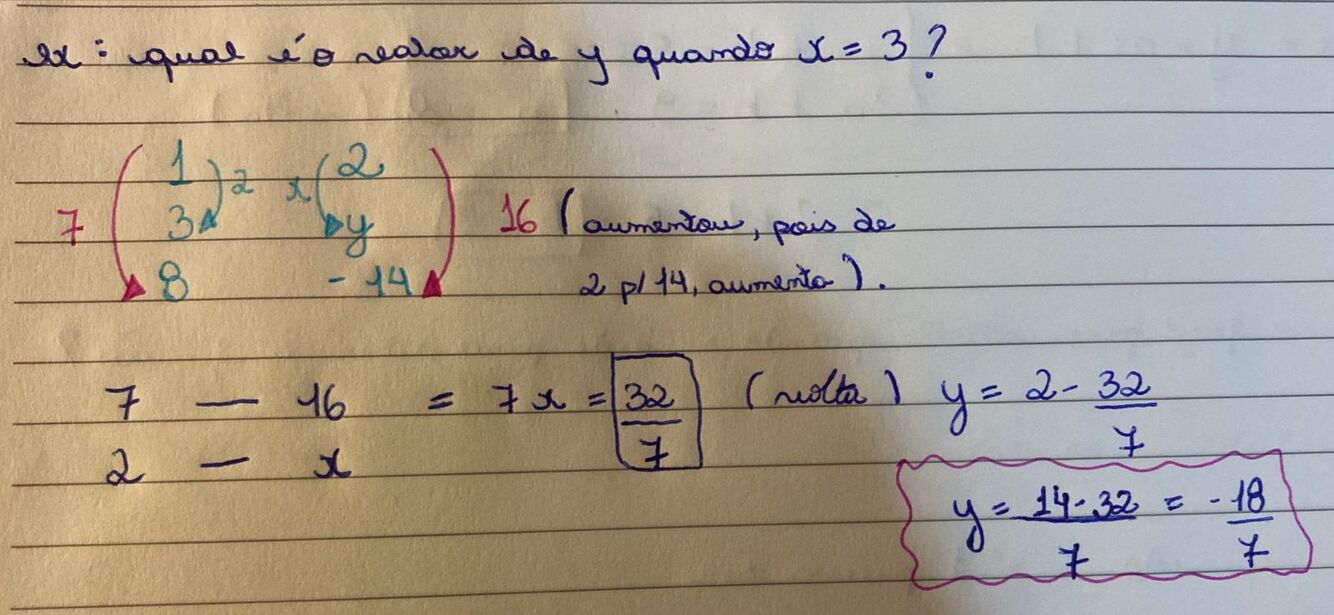 ex: qual é o valor de y quando x = 3?
1 2 x 2
7 3 y 16 (aumentou, pois de
8 -14 2 p/ 14, aumenta).
7 — 16 = 7x = 32/7 (volta) y = 2 - 32/7
2 — x
y = 14-32/7 = -18/7